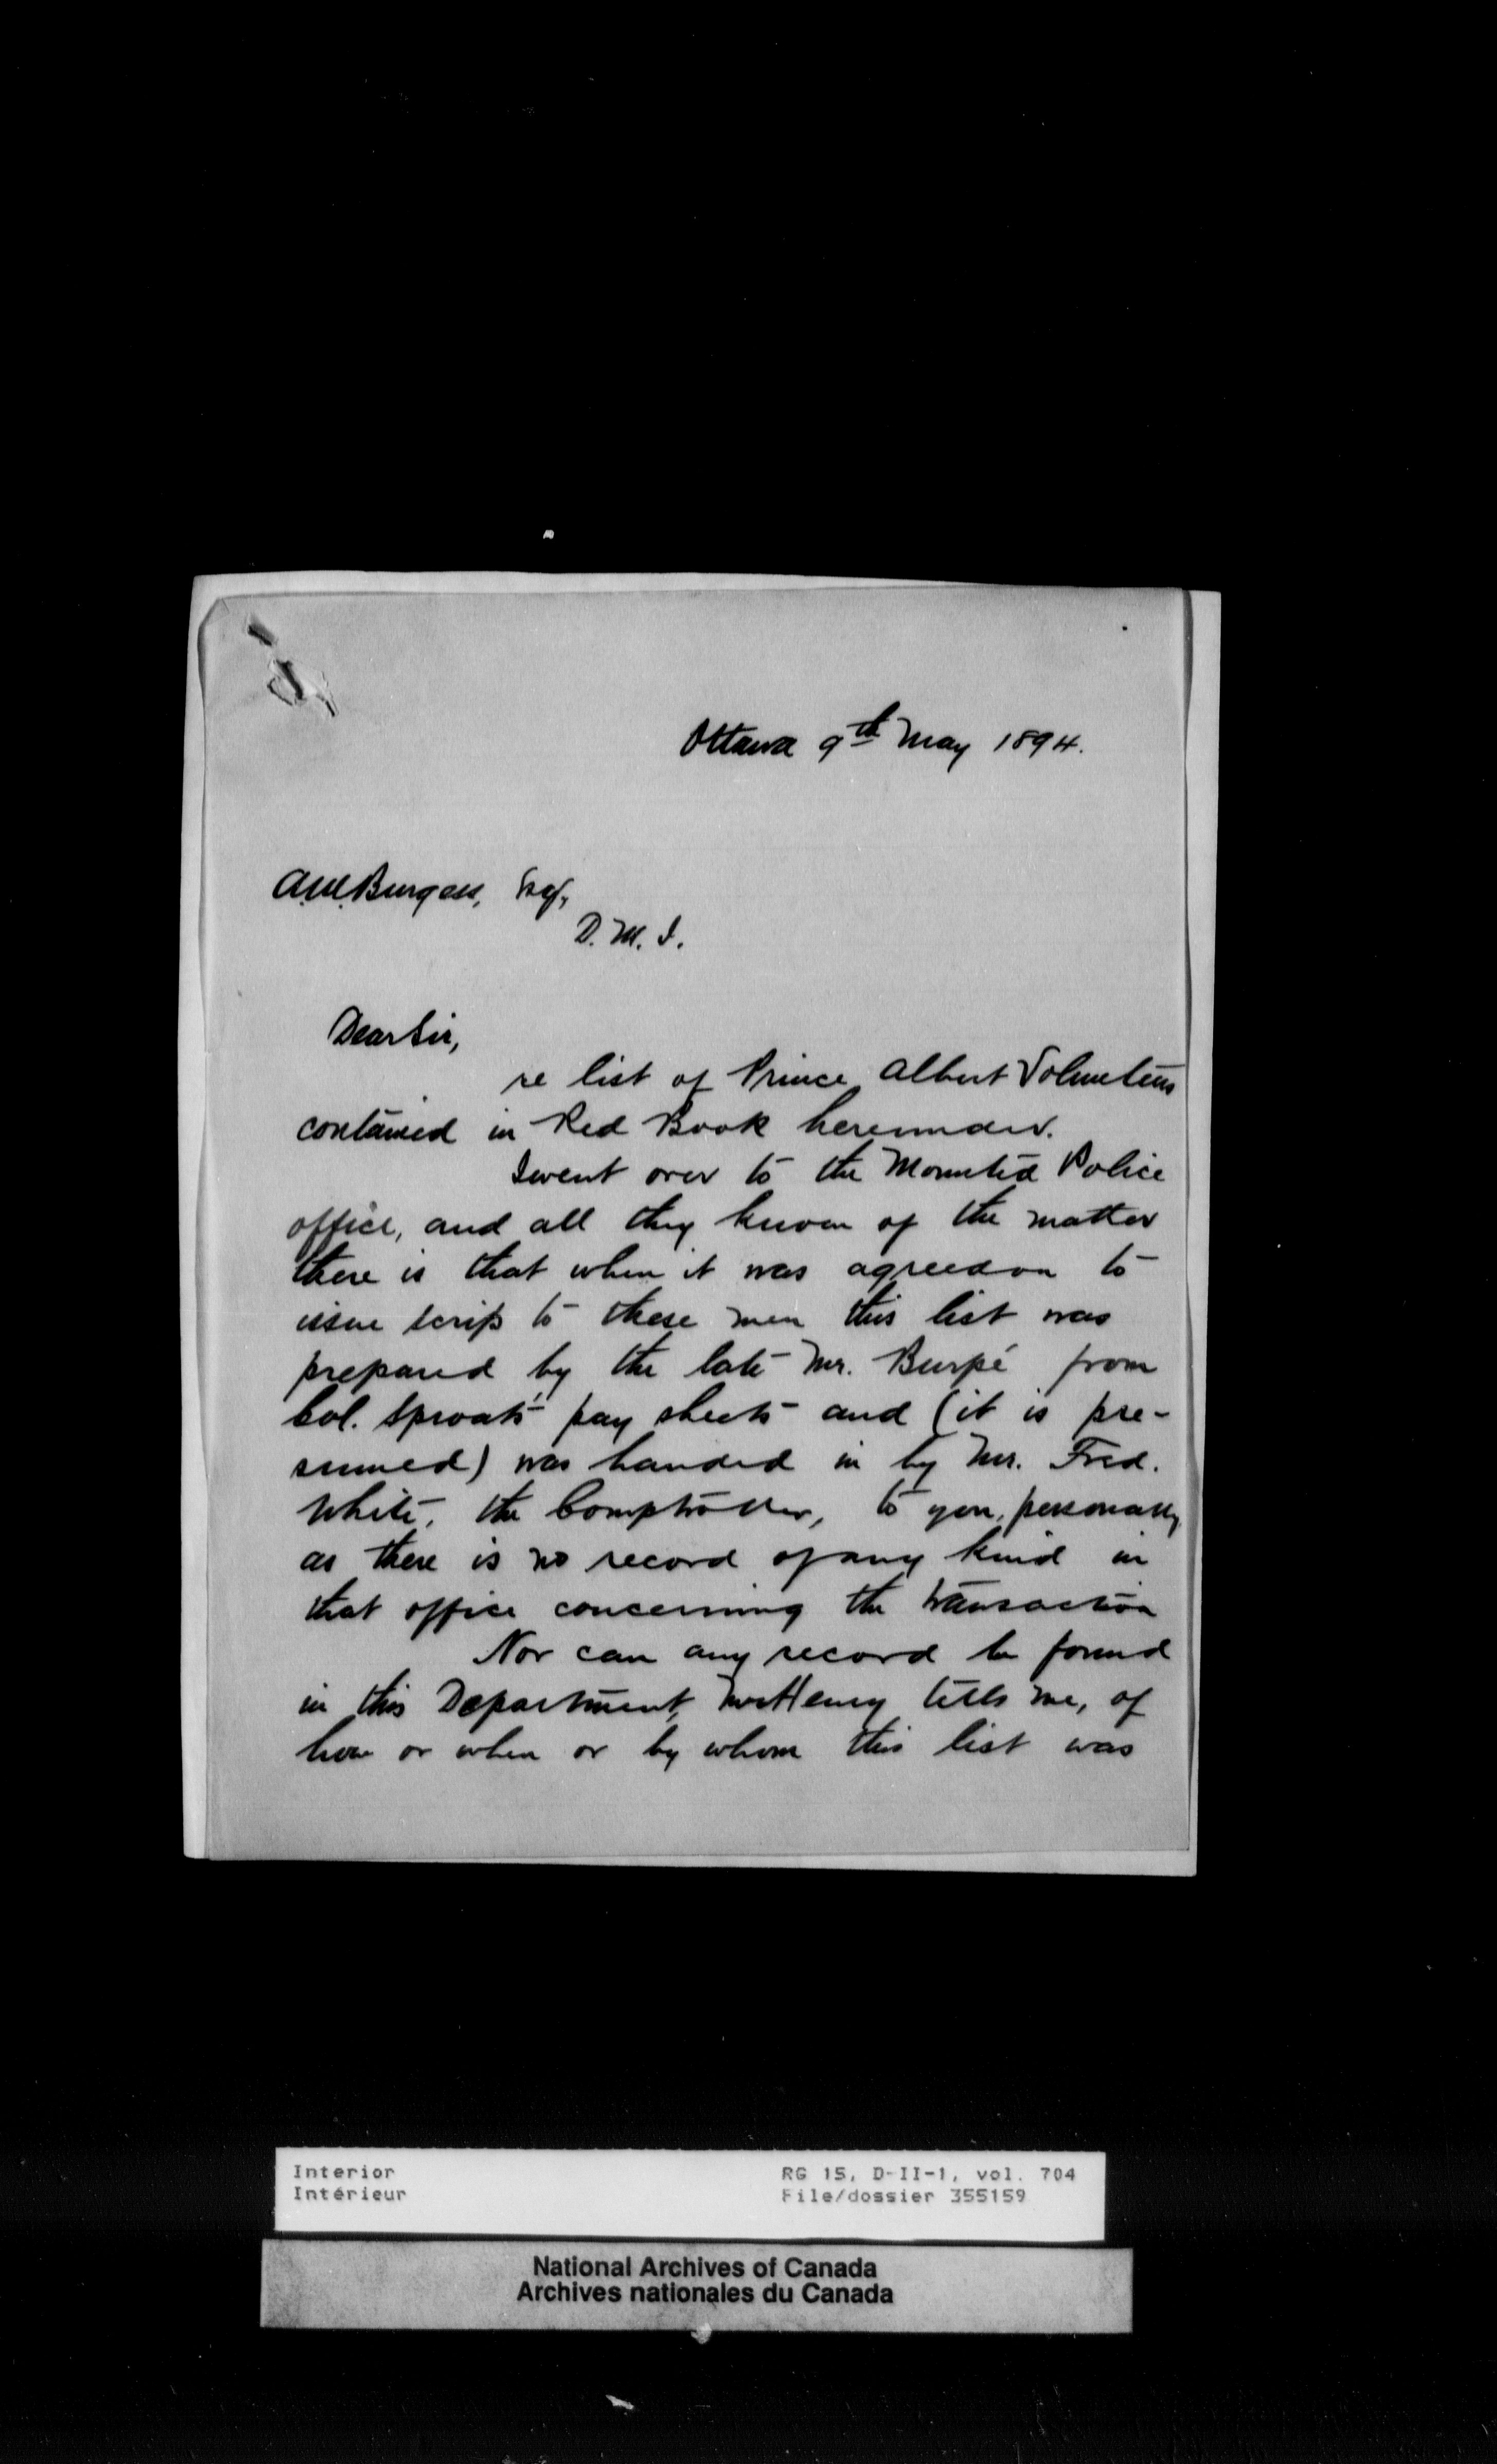 Ottawa 9th May 1894.
A.M. Burgess, Esq,
D. M. I.
Dear Sir,
re list of Prince Albert Volunteers
contained in Red Book hereunder.
I went over to the Mounted Police
office, and all they know of the matter
there is that when it was agreed on to
issue scrip to these men this list was
prepared by the late Mr. Burpé from
Col. Sproat's pay sheets and (it is pre-
sumed) was handed in by Mr. Fred.
White, the Comptroller, to you, personally
as there is no record of any kind in
that office concerning the transaction
Nor can any record be found
in this Department, Mr Henry tells me, of
how or when or by whom this list was
Interior
Intérieur
RG 15, D-II-1, vol. 704
File/dossier 355159
National Archives of Canada
Archives nationales du Canada